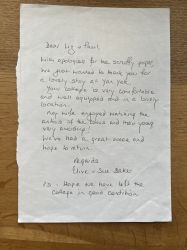 Dear Liz + Paul,
With apologies for the scruffy paper.
We just wanted to thank you for
a lovely stay at
Your cottage is very comfortable
and well equipped and in a lovely
location.
enjoyed watching the
antics of the
very amusing!
We've had a great week and
hope to return.
Regards
Clive + Sue Baker
P.S. Hope we have left the
cottage in good condition.